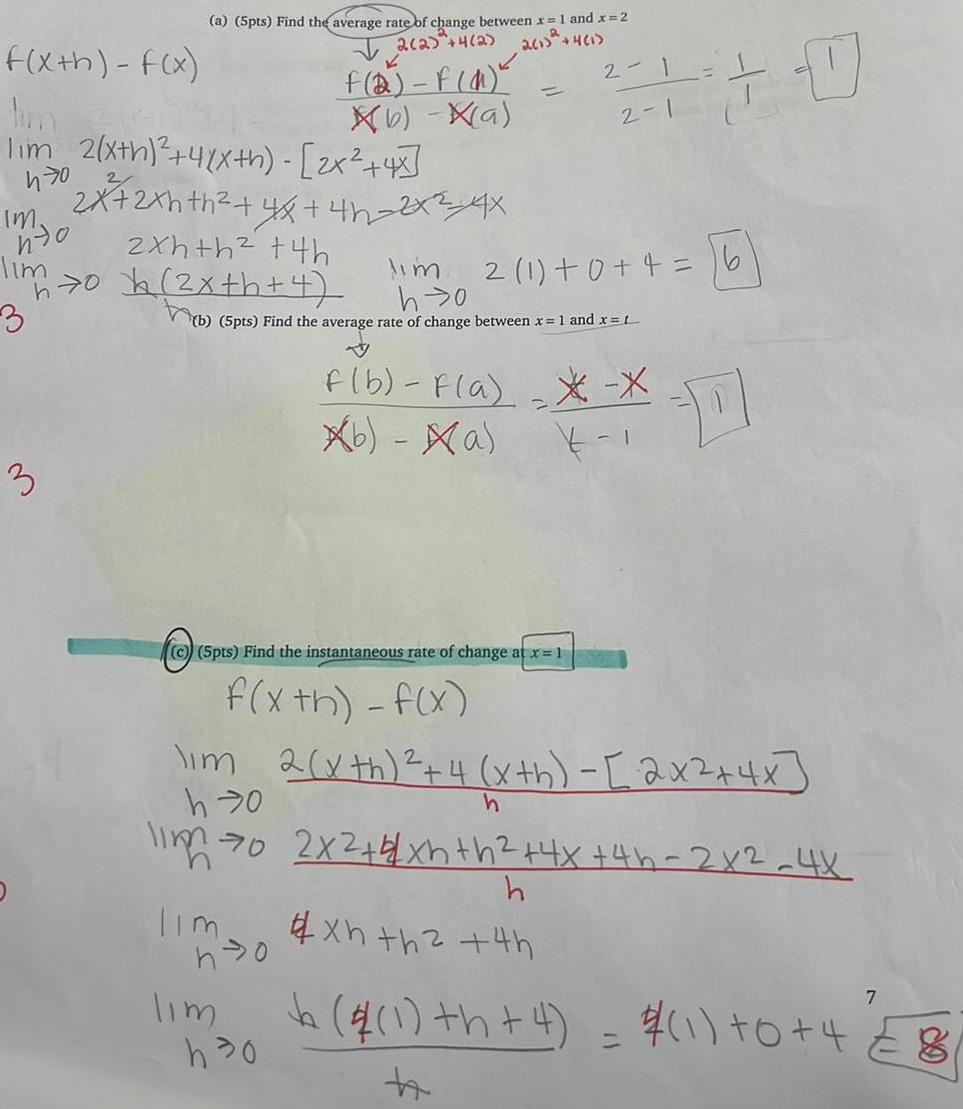 (a) (5pts) Find the average rate of change between x = 1 and x = 2
2(2)² + 4(2) 2(1)² + 4(1)
f(x+h) - f(x)
f(2) - f(1) / x(b) - x(a) = 2 - 1 / 2 - 1 = 1 / 1 = 1
lim
lim h→0 2(x+h)² + 4(x+h) - [2x² + 4x]
lim h→0 2x² + 2xh + h² + 4x + 4h - 2x² - 4x
2xh + h² + 4h
lim h→0 h(2x + h + 4) / h lim h→0 2(1) + 0 + 4 = 6
3
(b) (5pts) Find the average rate of change between x = 1 and x = t
f(b) - f(a) / x(b) - x(a) = x - x / t - 1 = 1
3
(c) (5pts) Find the instantaneous rate of change at x = 1
f(x+h) - f(x)
lim h→0 2(x+h)² + 4(x+h) - [2x² + 4x] / h
lim h→0 2x² + 4xh + h² + 4x + 4h - 2x² - 4x / h
lim h→0 4xh + h² + 4h
7
lim h→0 h(4(1) + h + 4) / h = 4(1) + 0 + 4 = 8